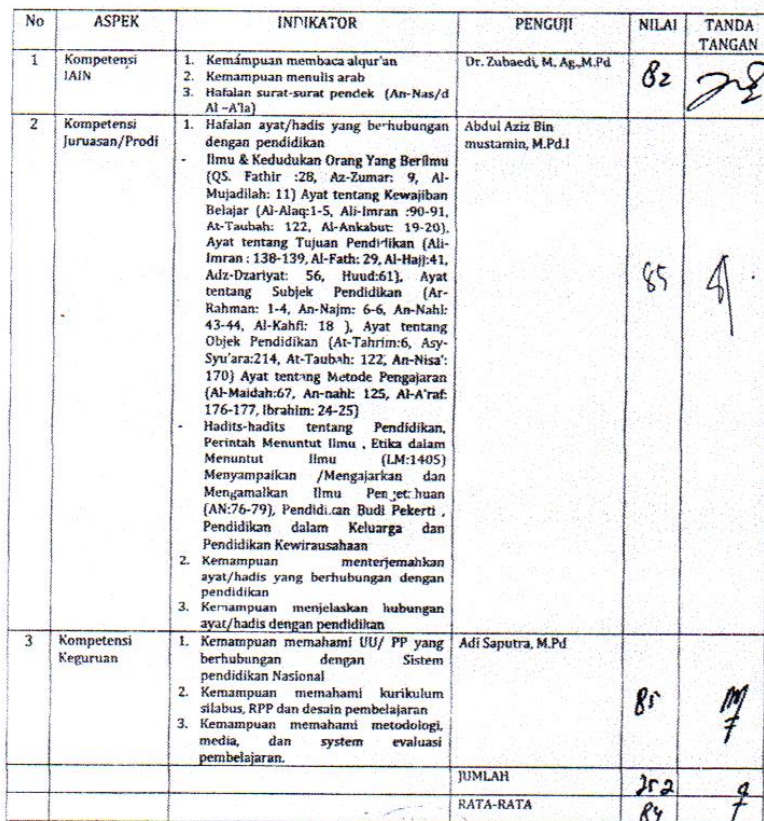 No ASPEK INDIKATOR PENGUJI NILAI TANDA
TANGAN
1 Kompetensi
IAIN
1. Kemampuan membaca alqur'an
2. Kemampuan menulis arab
3. Hafalan surat-surat pendek (An-Nas/d
Al –A'la)
Dr. Zubaedi, M. Ag.,M.Pd
82
2 Kompetensi
Juruasan/Prodi
1. Hafalan ayat/hadis yang berhubungan
dengan pendidikan
- Ilmu & Kedudukan Orang Yang Berilmu
(QS. Fathir :28, Az-Zumar: 9, Al-
Mujadilah: 11) Ayat tentang Kewajiban
Belajar (Al-Alaq:1-5, Ali-Imran :90-91,
At-Taubah: 122, Al-Ankabut: 19-20),
Ayat tentang Tujuan Pendidikan (Ali-
Imran : 138-139, Al-Fath: 29, Al-Hajj:41,
Adz-Dzariyat: 56, Huud:61), Ayat
tentang Subjek Pendidikan (Ar-
Rahman: 1-4, An-Najm: 6-6, An-Nahl:
43-44, Al-Kahfi: 18 ), Ayat tentang
Objek Pendidikan (At-Tahrim:6, Asy-
Syu'ara:214, At-Taubah: 122, An-Nisa':
170) Ayat tentang Metode Pengajaran
(Al-Maidah:67, An-nahl: 125, Al-A'raf:
176-177, Ibrahim: 24-25)
- Hadits-hadits tentang Pendidikan,
Perintah Menuntut Ilmu , Etika dalam
Menuntut Ilmu (LM:1405)
Menyampaikan /Mengajarkan dan
Mengamalkan Ilmu Pengetahuan
(AN:76-79), Pendidikan Budi Pekerti ,
Pendidikan dalam Keluarga dan
Pendidikan Kewirausahaan
2. Kemampuan menterjemahkan
ayat/hadis yang berhubungan dengan
pendidikan
3. Kemampuan menjelaskan hubungan
ayat/hadis dengan pendidikan
Abdul Aziz Bin
mustamin, M.Pd.I
85
3 Kompetensi
Keguruan
1. Kemampuan memahami UU/ PP yang
berhubungan dengan Sistem
pendidikan Nasional
2. Kemampuan memahami kurikulum
silabus, RPP dan desain pembelajaran
3. Kemampuan memahami metodologi,
media, dan system evaluasi
pembelajaran.
Adi Saputra, M.Pd
85
JUMLAH 252
RATA-RATA 84